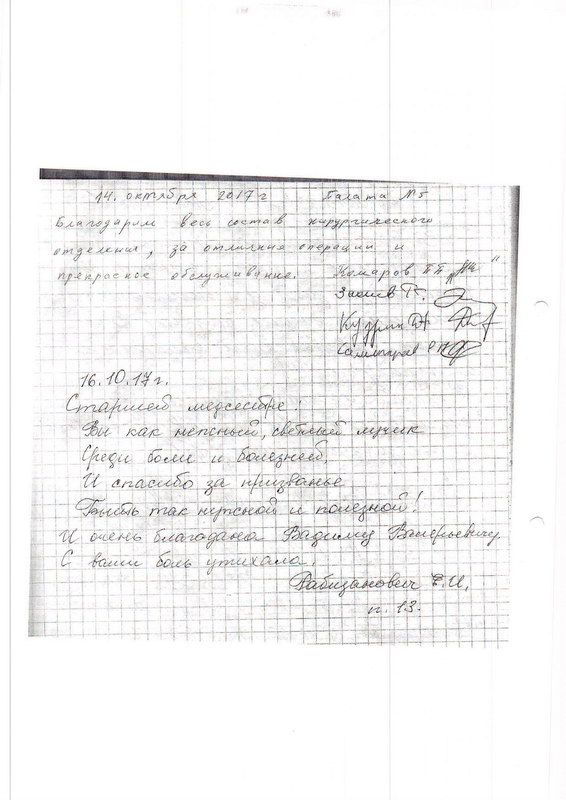 14. октября 2017 г Палата №5
Благодарим весь состав хирургического
отделения, за отличные операции и
прекрасное обслуживание. Комаров
16.10.17 г.
Старшей медсестре:
Вы как нежный, светлый лучик
Среди боли и болезней,
И спасибо за призванье
Быть так нужной и полезной!
И очень благодарна Вадиму Валерьевичу.
С вами боль утихала.
Е.И.
п. 13.